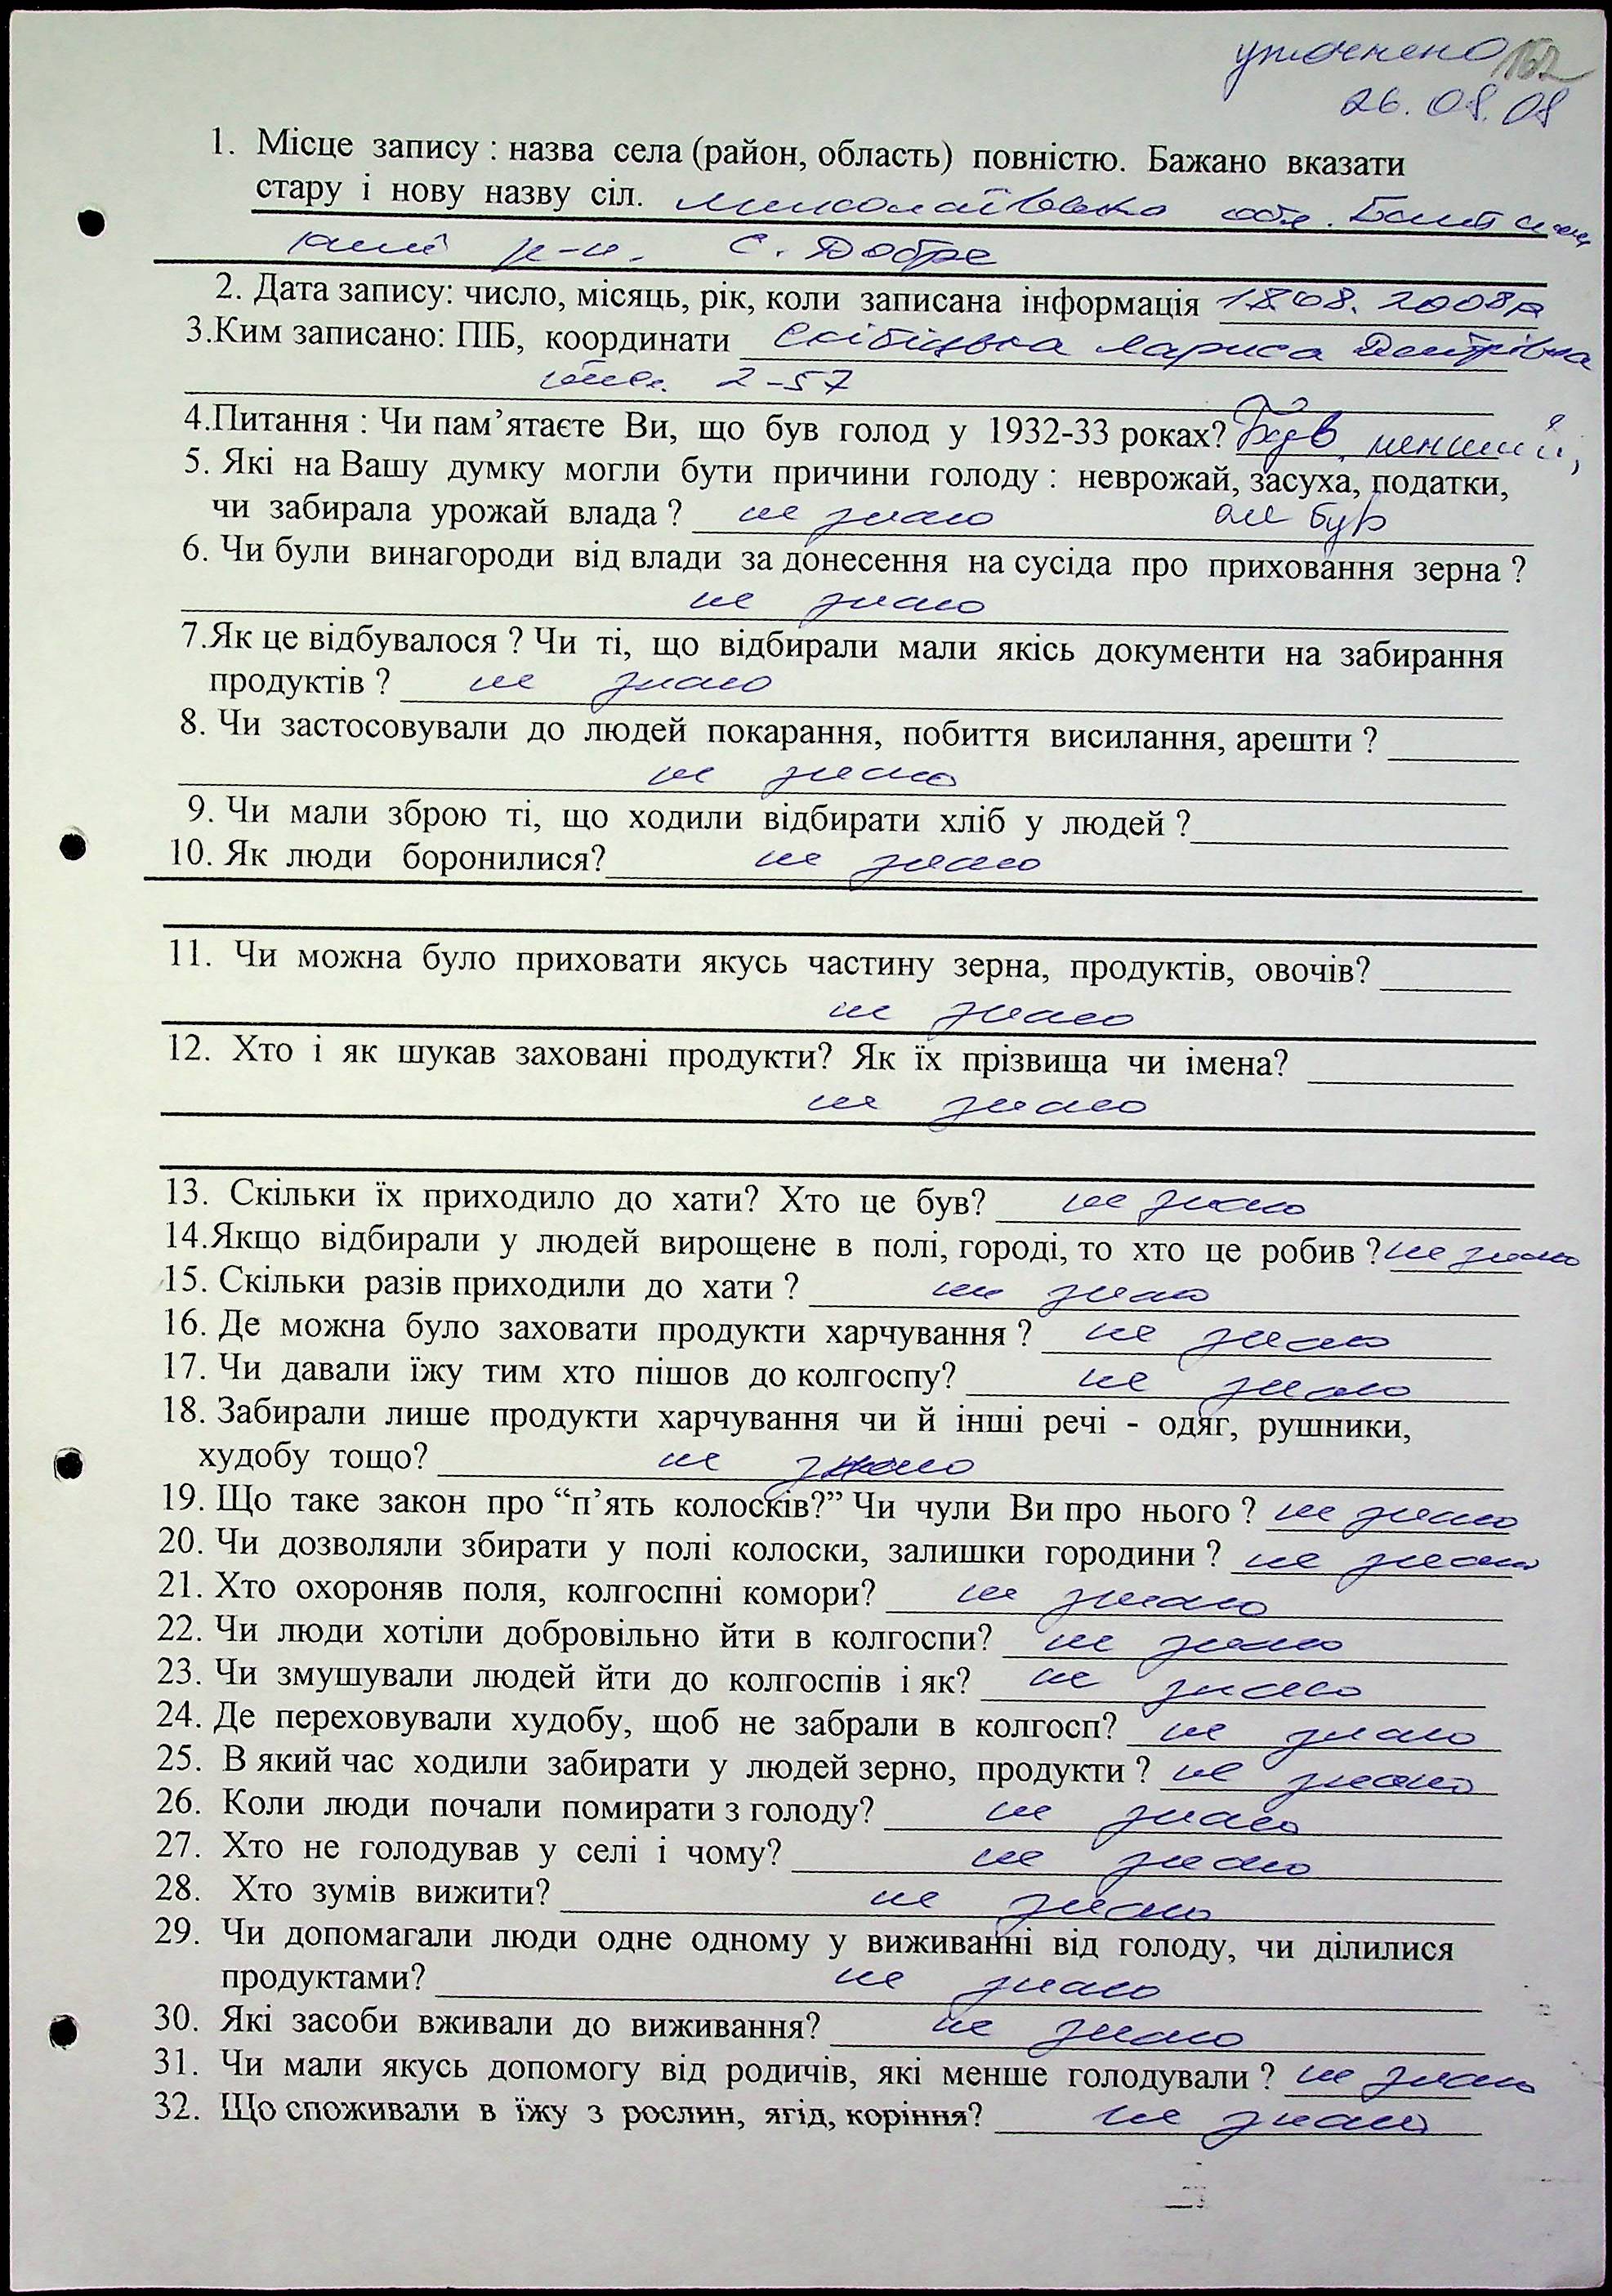 уточнено 162
26.08.08
1. Місце запису : назва села (район, область) повністю. Бажано вказати
стару і нову назву сіл. Миколаївська обл. Баштан
ський р-н. с. Добре
2. Дата запису: число, місяць, рік, коли записана інформація 18.08. 2008р
3.Ким записано: ПІБ, координати Скібіцька Лариса Дмитрівна
2-57
4.Питання : Чи пам’ятаєте Ви, що був голод у 1932-33 роках? Був, менший,
5. Які на Вашу думку могли бути причини голоду : неврожай, засуха, податки,
чи забирала урожай влада ? не знаю але був
6. Чи були винагороди від влади за донесення на сусіда про приховання зерна ?
не знаю
7.Як це відбувалося ? Чи ті, що відбирали мали якісь документи на забирання
продуктів ? не знаю
8. Чи застосовували до людей покарання, побиття висилання, арешти ?
не знаю
9. Чи мали зброю ті, що ходили відбирати хліб у людей ?
10. Як люди боронилися? не знаю
11. Чи можна було приховати якусь частину зерна, продуктів, овочів?
не знаю
12. Хто і як шукав заховані продукти? Як їх прізвища чи імена?
не знаю
13. Скільки їх приходило до хати? Хто це був? не знаю
14.Якщо відбирали у людей вирощене в полі, городі, то хто це робив ? не знаю
15. Скільки разів приходили до хати ? не знаю
16. Де можна було заховати продукти харчування ? не знаю
17. Чи давали їжу тим хто пішов до колгоспу? не знаю
18. Забирали лише продукти харчування чи й інші речі - одяг, рушники,
худобу тощо? не знаю
19. Що таке закон про “п’ять колосків?” Чи чули Ви про нього ? не знаю
20. Чи дозволяли збирати у полі колоски, залишки городини ? не знаю
21. Хто охороняв поля, колгоспні комори? не знаю
22. Чи люди хотіли добровільно йти в колгоспи? не знаю
23. Чи змушували людей йти до колгоспів і як? не знаю
24. Де переховували худобу, щоб не забрали в колгосп? не знаю
25. В який час ходили забирати у людей зерно, продукти ? не знаю
26. Коли люди почали помирати з голоду? не знаю
27. Хто не голодував у селі і чому? не знаю
28. Хто зумів вижити? не знаю
29. Чи допомагали люди одне одному у виживанні від голоду, чи ділилися
продуктами? не знаю
30. Які засоби вживали до виживання? не знаю
31. Чи мали якусь допомогу від родичів, які менше голодували ? не знаю
32. Що споживали в їжу з рослин, ягід, коріння? не знаю